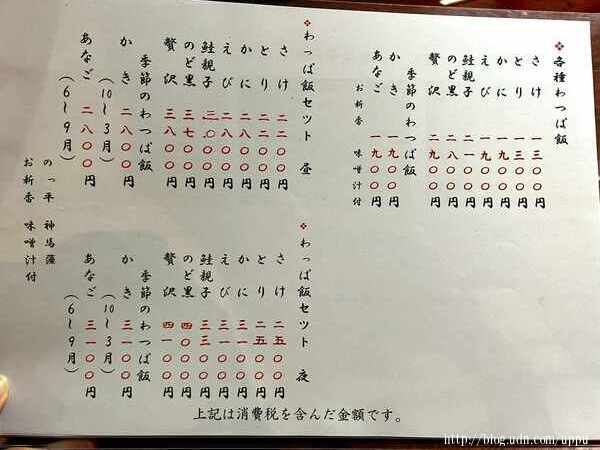 各種わっぱ飯
さけ 一三〇〇円
とり 一三〇〇円
かに 一九〇〇円
えび 一九〇〇円
鮭親子 二一〇〇円
のど黒 二八〇〇円
贅沢 二九〇〇円
季節のわっぱ飯
かき 一九〇〇円
あなご 一九〇〇円
お新香 味噌汁付
わっぱ飯セット 昼
さけ 二二〇〇円
とり 二二〇〇円
かに 二八〇〇円
えび 二八〇〇円
鮭親子 三〇〇〇円
のど黒 三七〇〇円
贅沢 三八〇〇円
季節のわっぱ飯
かき 二八〇〇円
(10〜3月)
あなご 二八〇〇円
(6〜9月)
わっぱ飯セット 夜
さけ 二五〇〇円
とり 二五〇〇円
かに 三一〇〇円
えび 三一〇〇円
鮭親子 三三〇〇円
のど黒 四〇〇〇円
贅沢 四一〇〇円
季節のわっぱ飯
かき 三一〇〇円
(10〜3月)
あなご 三一〇〇円
(6〜9月)
のっ平 神馬藻
お新香 味噌汁付
上記は消費税を含んだ金額です。
http://blog.udn.com/uppu